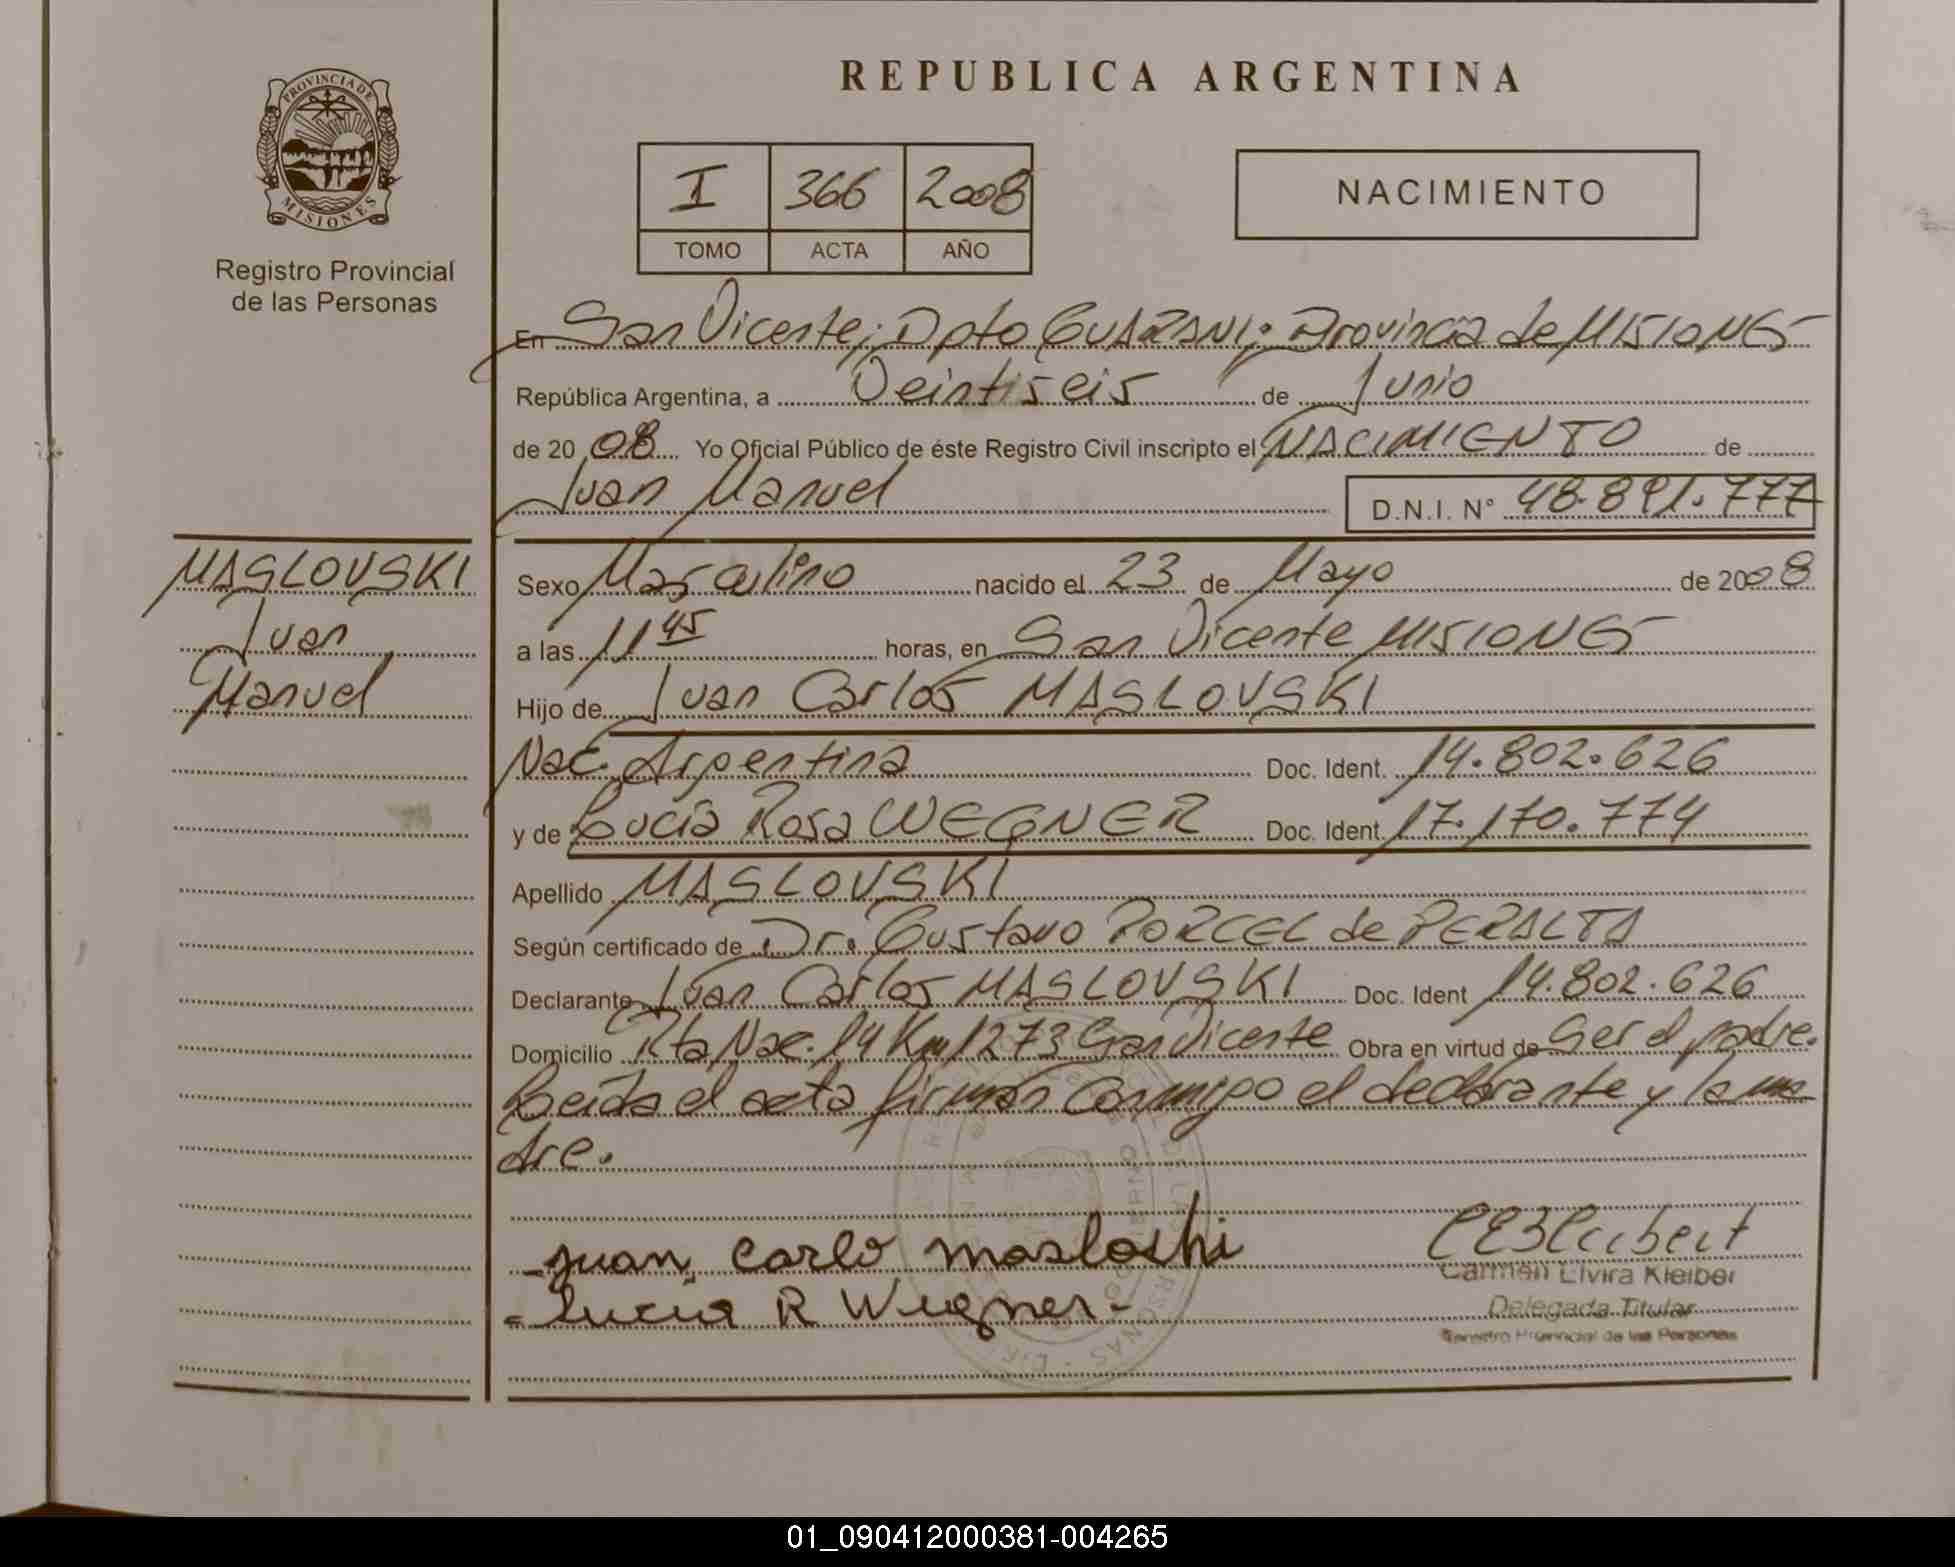 REPUBLICA ARGENTINA
PROVINCIA DE MISIONES
Registro Provincial
de las Personas
I 366 2008
TOMO ACTA AÑO
NACIMIENTO
En San Vicente; Dpto GUARANI; Provincia de MISIONES
República Argentina, a Veintiseis de Junio
de 2008 Yo Oficial Público de éste Registro Civil inscripto el NACIMIENTO de
Juan Manuel D.N.I. N° 48.891.777
MASLOVSKI
Juan
Manuel
Sexo Masculino nacido el 23 de Mayo de 2008
a las 11 45 horas, en San Vicente MISIONES
Hijo de Juan Carlos MASLOVSKI
Nac. Argentina Doc. Ident. 14.802.626
y de Lucia Rosa WEGNER Doc. Ident. 17.170.774
Apellido MASLOVSKI
Según certificado de Dr. Gustavo PORCEL de PERALTA
Declarante Juan Carlos MASLOVSKI Doc. Ident 14.802.626
Domicilio Rta Nac. 14 Km 1273 San Vicente Obra en virtud de Ser el padre.
Leida el acta firman conmigo el declarante y la ma
dre.
Juan Carlo masloshi
Lucia R Wegner
Carmen Elvira Kleiber
Delegada Titular
Registro Provincial de las Personas
01_090412000381-004265